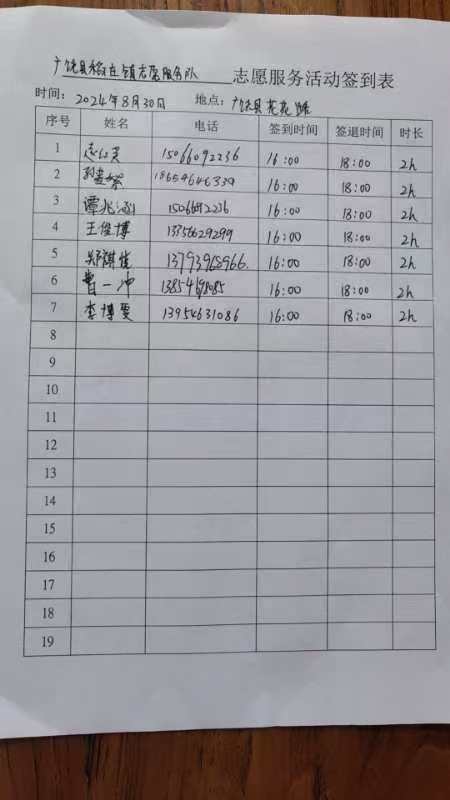 广饶县稻庄镇志愿服务队 志愿服务活动签到表
时间：2024年8月30日 地点：广饶县
序号 姓名 电话 签到时间 签退时间 时长
1 15066092236 16:00 18:00 2h
2 18659646339 16:00 18:00 2h
3 谭兆 16:00 18:00 2h
4 王俊博 16:00 18:00 2h
5 郑祺佳 16:00 18:00 2h
6 曹一冲 16:00 18:00 2h
7 李博雯 13954631086 16:00 18:00 2h
8
9
10
11
12
13
14
15
16
17
18
19